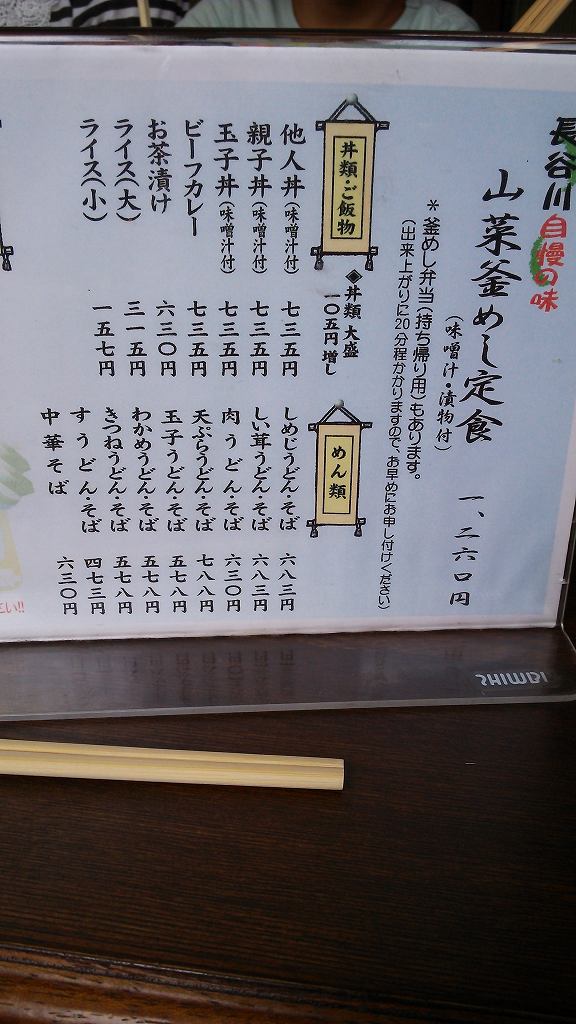 長谷川自慢の味
山菜釜めし定食 一、二六〇円
（味噌汁・漬物付）
＊釜めし弁当（持ち帰り用）もあります。
（出来上がりに20分程かかりますので、お早めにお申し付けください）
丼類・ご飯物
◆丼類 大盛
一〇五円増し
他人丼（味噌汁付） 七三五円
親子丼（味噌汁付） 七三五円
玉子丼（味噌汁付） 七三五円
ビーフカレー 七三五円
お茶漬け 六三〇円
ライス（大） 三一五円
ライス（小） 一五七円
めん類
しめじうどん・そば 六八三円
しい茸うどん・そば 六八三円
肉うどん・そば 六三〇円
天ぷらうどん・そば 七八八円
玉子うどん・そば 五七八円
わかめうどん・そば 五七八円
きつねうどん・そば 五七八円
すうどん・そば 四七三円
中華そば 六三〇円
さい!!
SHIMBI